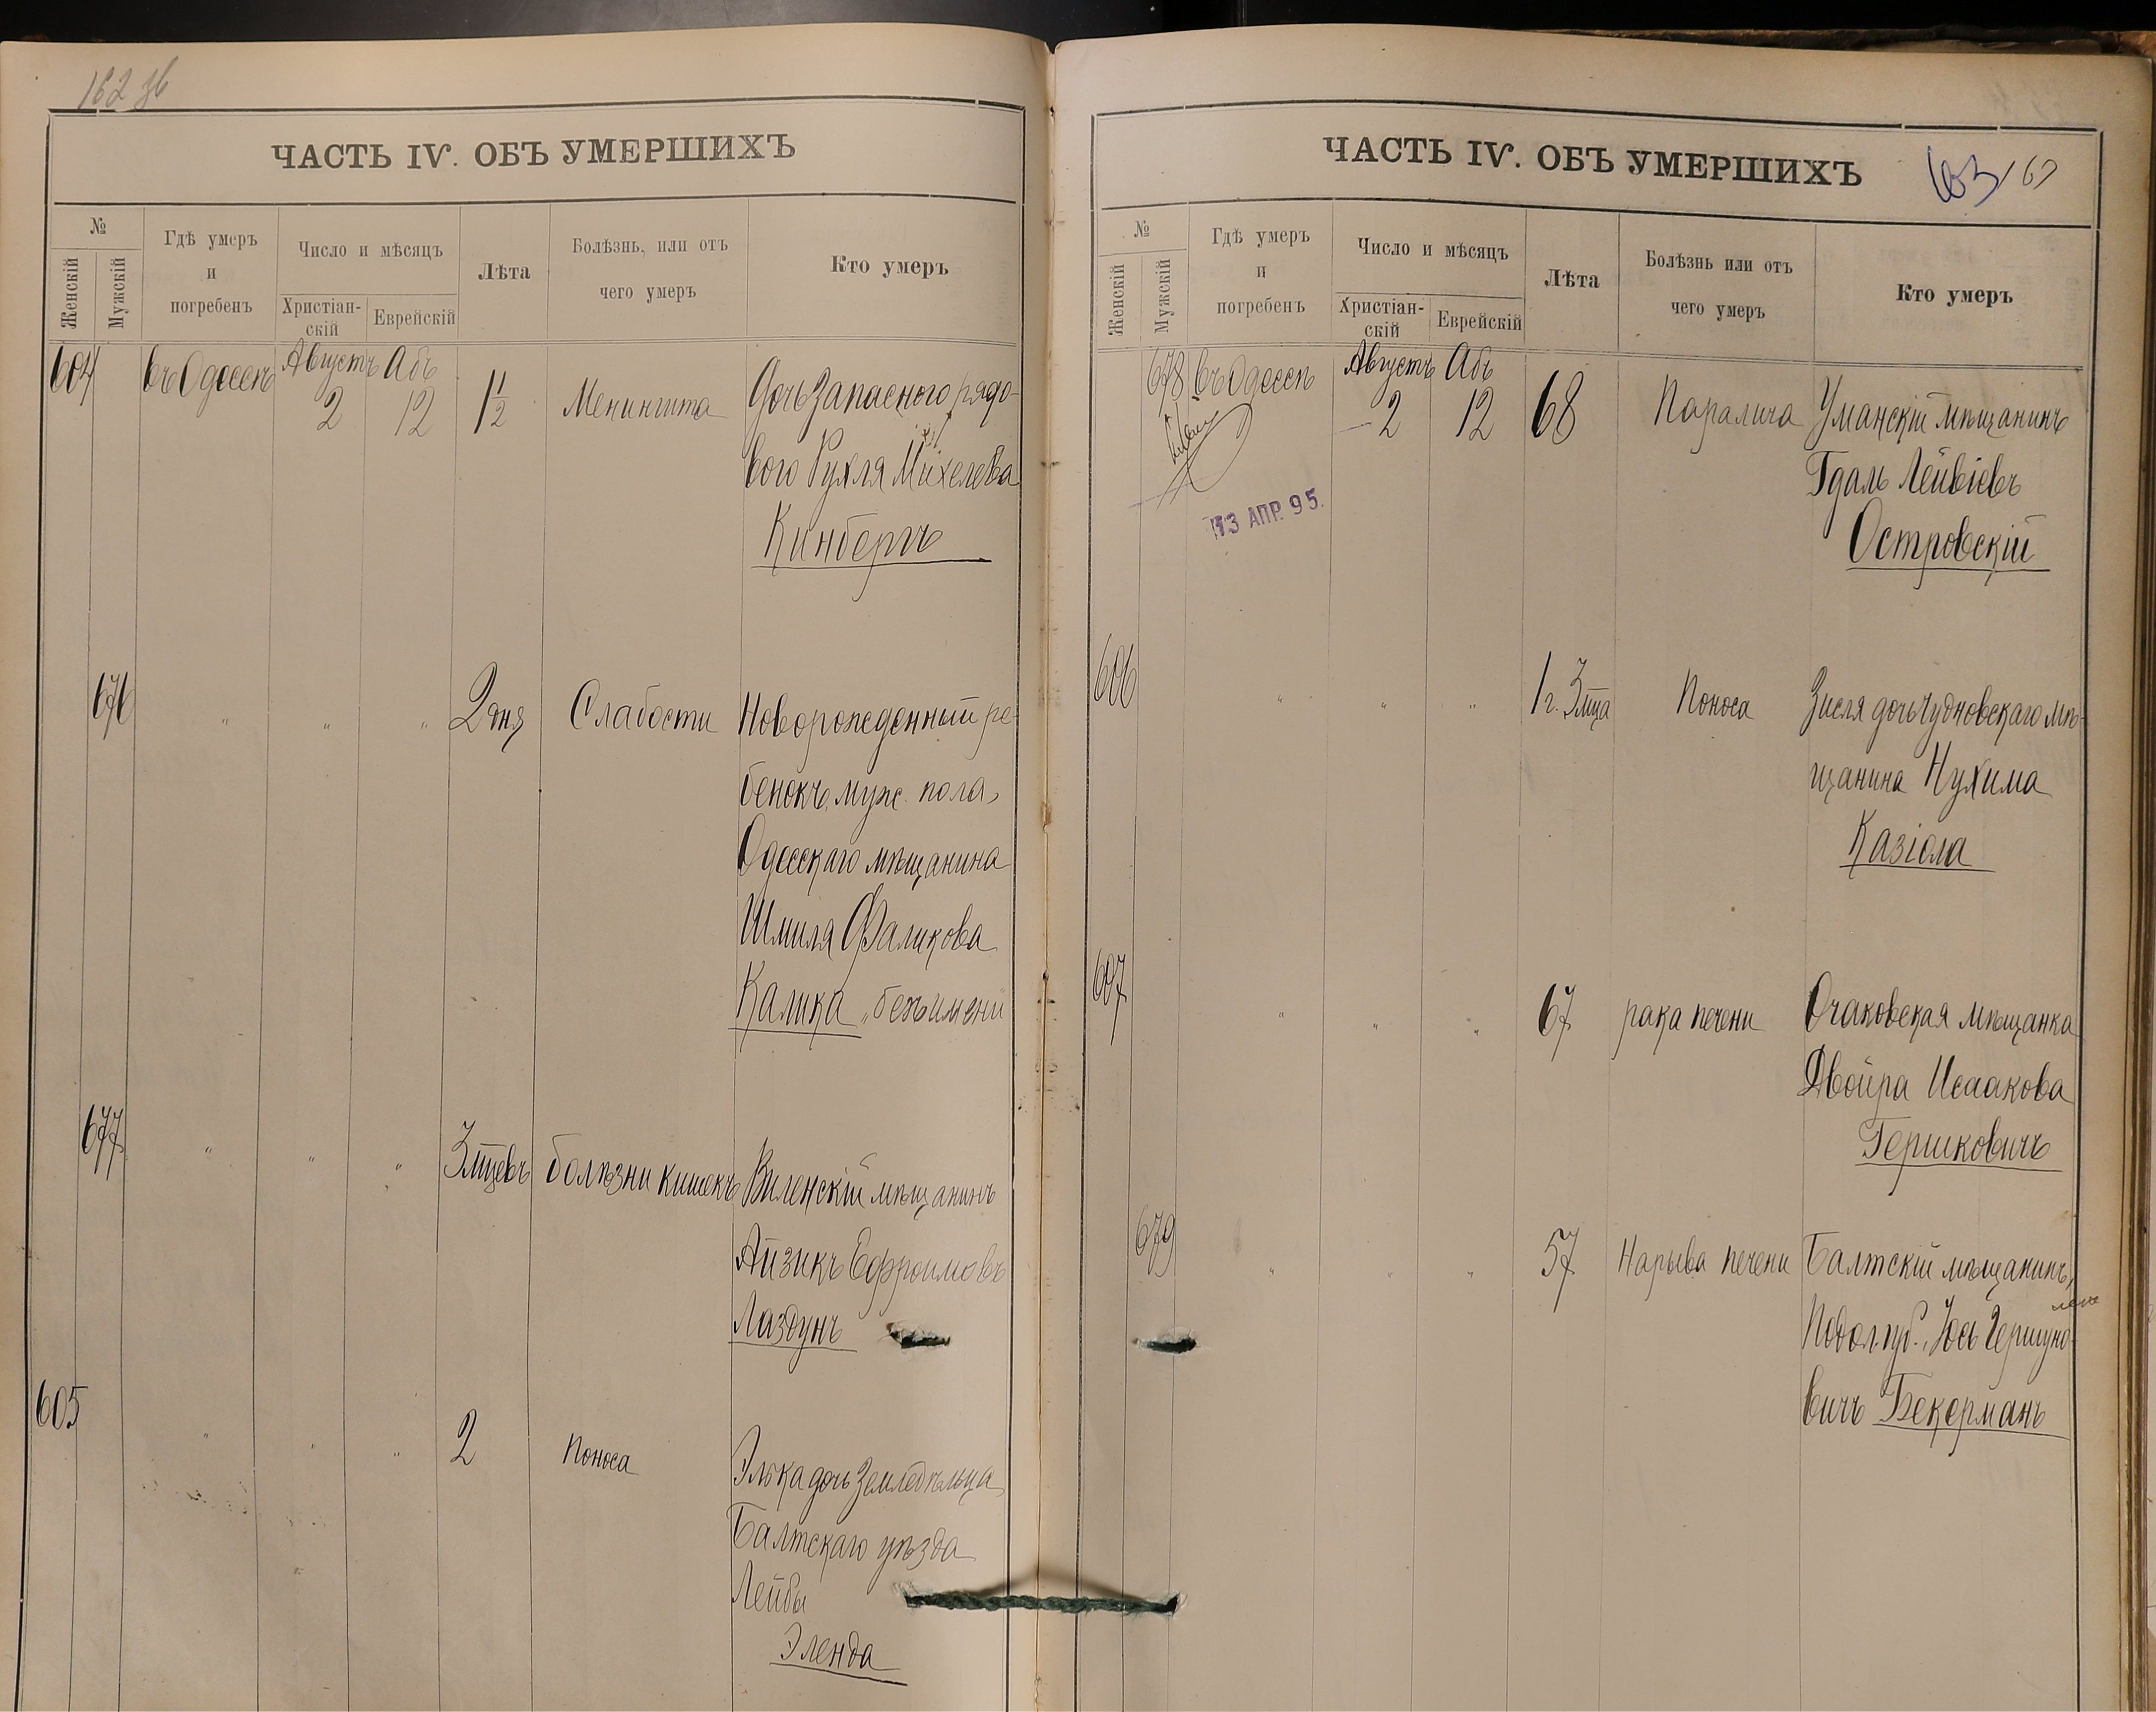 162 зв
ЧАСТЬ IV. ОБЪ УМЕРШИХЪ
№
Женскій
Мужскій
Гдѣ умеръ
и
погребенъ
Число и мѣсяцъ
Христіан-
скій
Еврейскій
Лѣта
Болѣзнь, или отъ
чего умеръ
Кто умеръ
604 въ Одессѣ Августъ 2 Абъ 12 1½ Менингита Дочь запаснаго рядо-
вого Рухля Михелева
Кинбергъ
676 " " " 2 дня Слабости Новорожденный ре-
бенокъ муж. пола,
Одесскаго мѣщанина
Шмиля Фаликова
Калика, безъ имени
677 " " " 3 м̃цевъ болѣзни кишекъ Виленскій мѣщанинъ
Айзикъ Ефроимовъ
Лаздунъ
605 " " " 2 Поноса Элька дочь Земледѣльца
Балтскаго уѣзда
Лейбы
Эленда
ЧАСТЬ IV. ОБЪ УМЕРШИХЪ
163
№
Женскій
Мужскій
Гдѣ умеръ
и
погребенъ
Число и мѣсяцъ
Христіан-
скій
Еврейскій
Лѣта
Болѣзнь или отъ
чего умеръ
Кто умеръ
678 въ Одессѣ Августъ 2 Абъ 12 68 Паралича Уманскій мѣщанинъ
Гдаль Лейвіевъ
Островскій
13 АПР. 95.
606 " " " 1 г. 3 м̃ца Поноса Зисля дочь Чудновскаго мѣ-
щанина Нухима
Казіола
607 " " " 67 рака печени Очаковская мѣщанка
Двойра Исаакова
Гершковичъ
679 " " " 57 Нарыва печени Балтскій мѣщанинъ,
Подол. губ., Іось Гершуно-
вичъ Бекерманъ